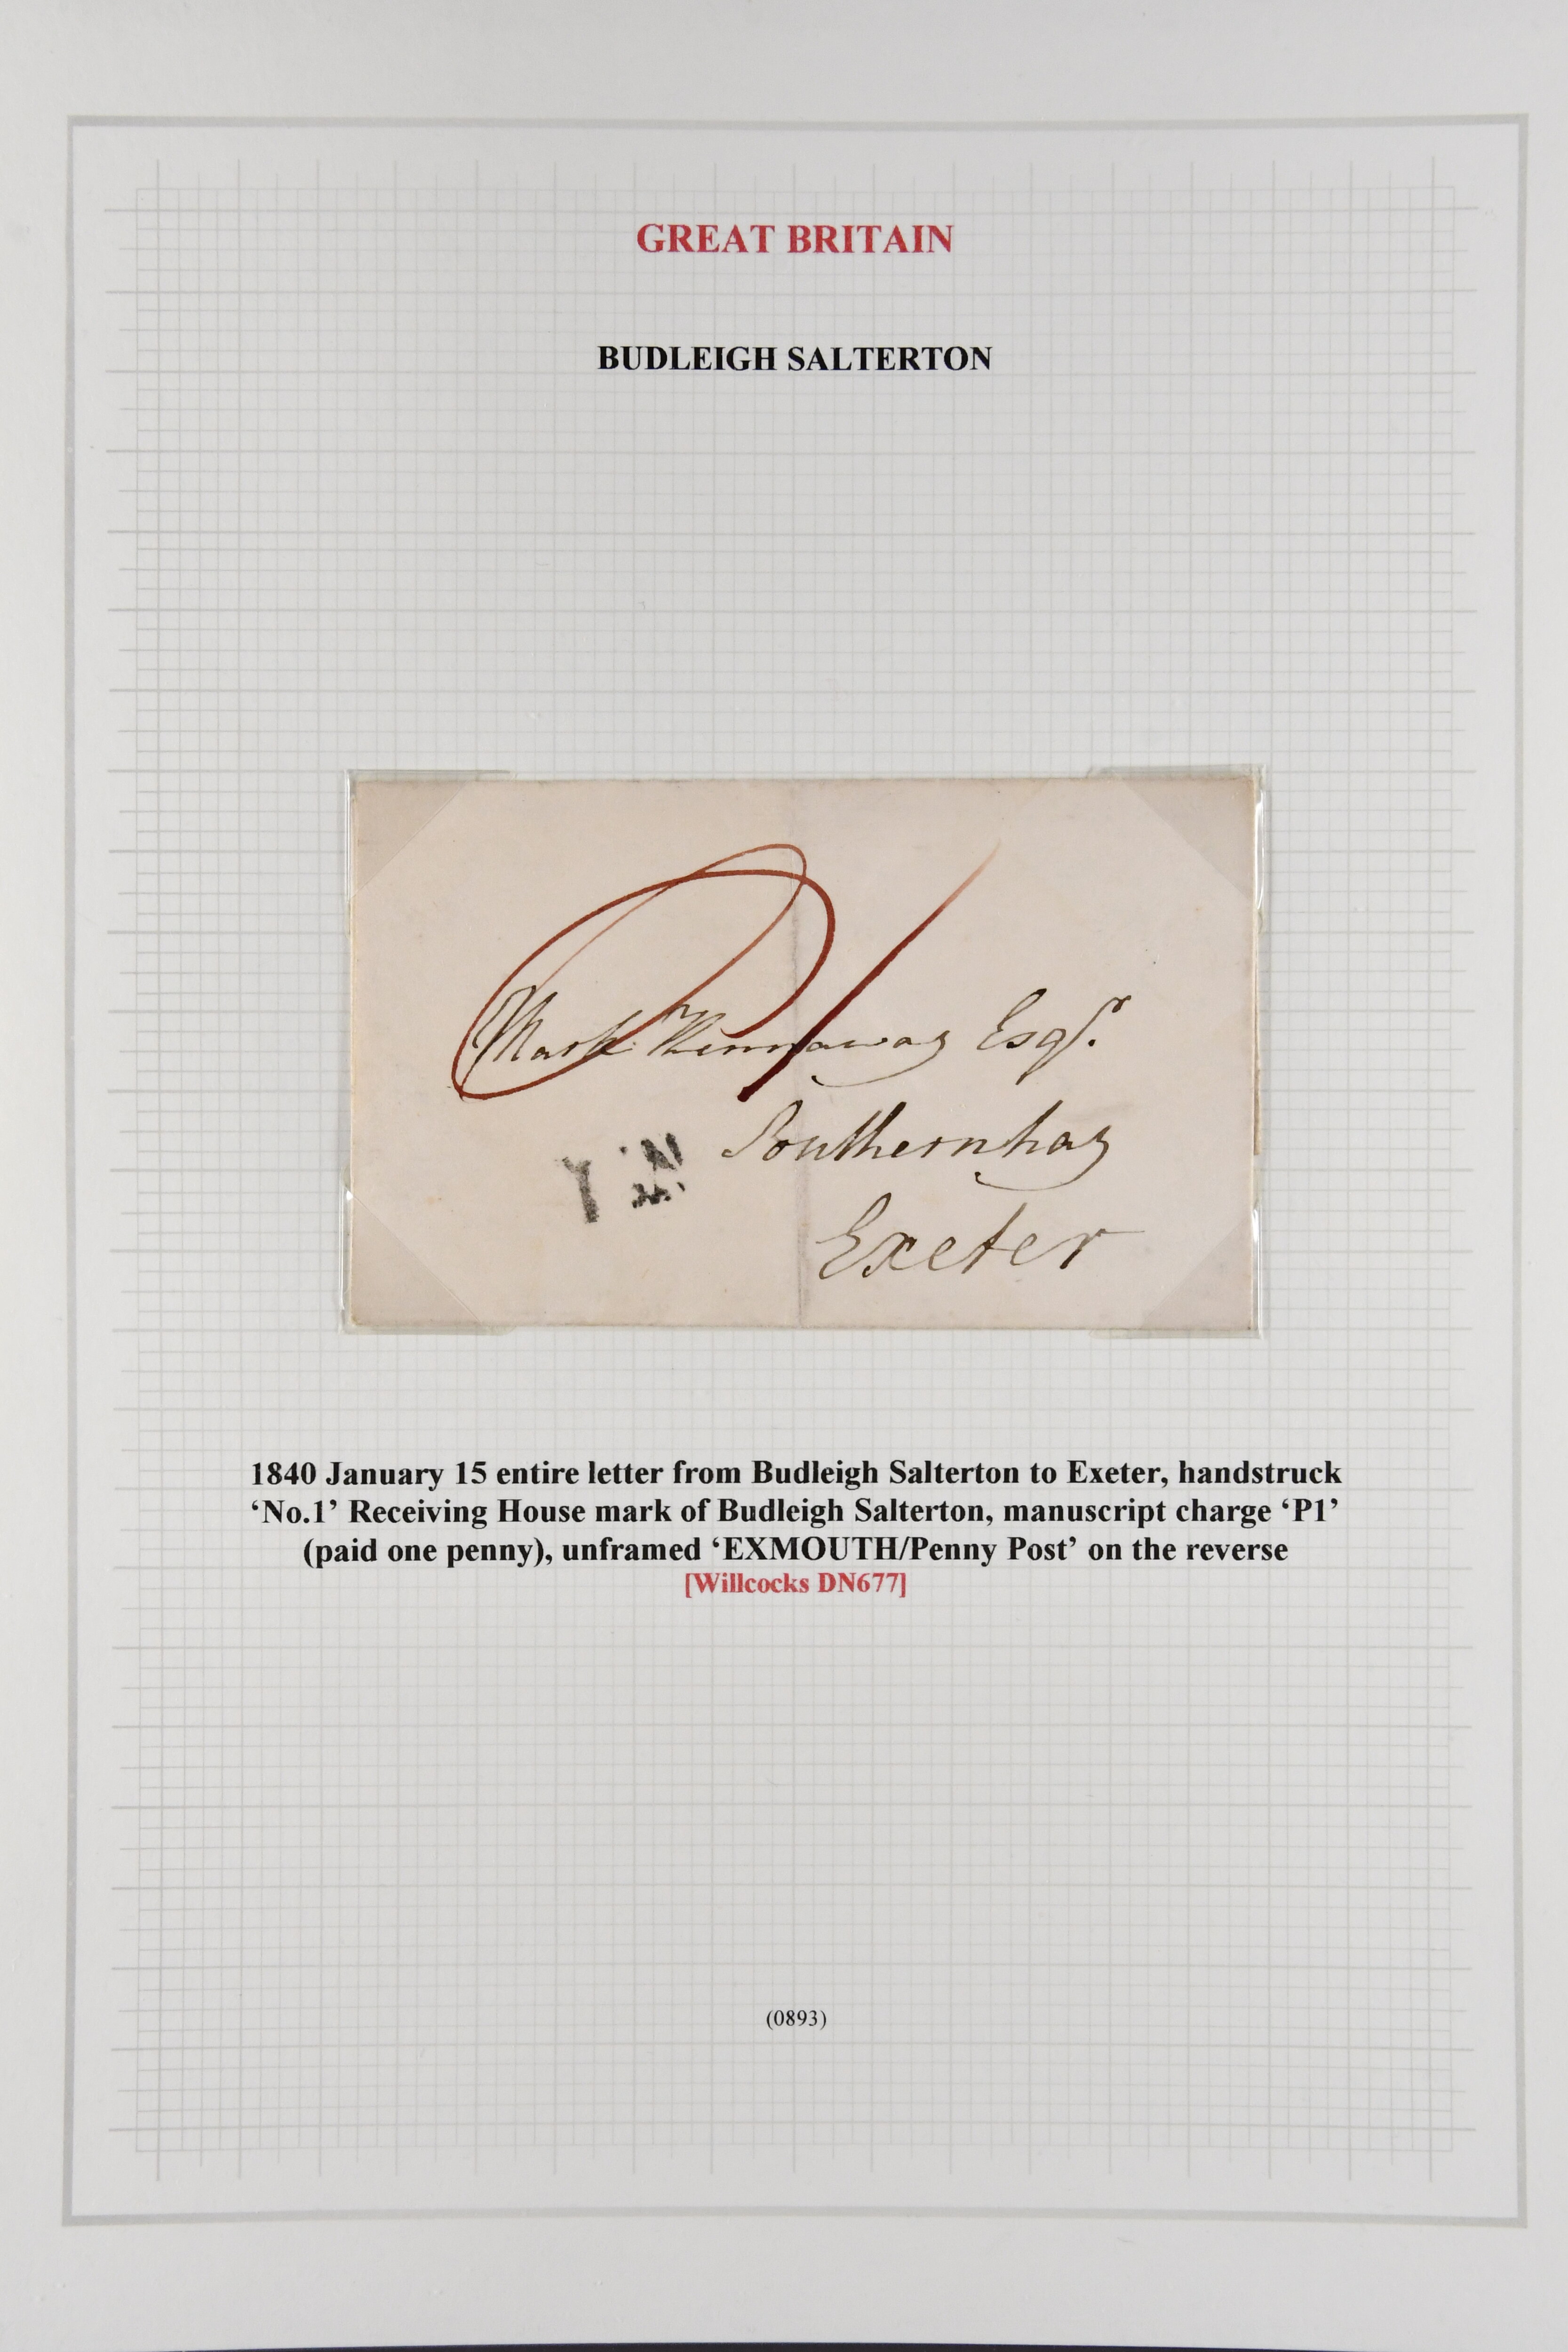 GREAT BRITAIN
BUDLEIGH SALTERTON
Mark Kennaway Esqr.
Southernhay
Exeter
1840 January 15 entire letter from Budleigh Salterton to Exeter, handstruck
‘No.1’ Receiving House mark of Budleigh Salterton, manuscript charge ‘P1’
(paid one penny), unframed ‘EXMOUTH/Penny Post’ on the reverse
[Willcocks DN677]
(0893)